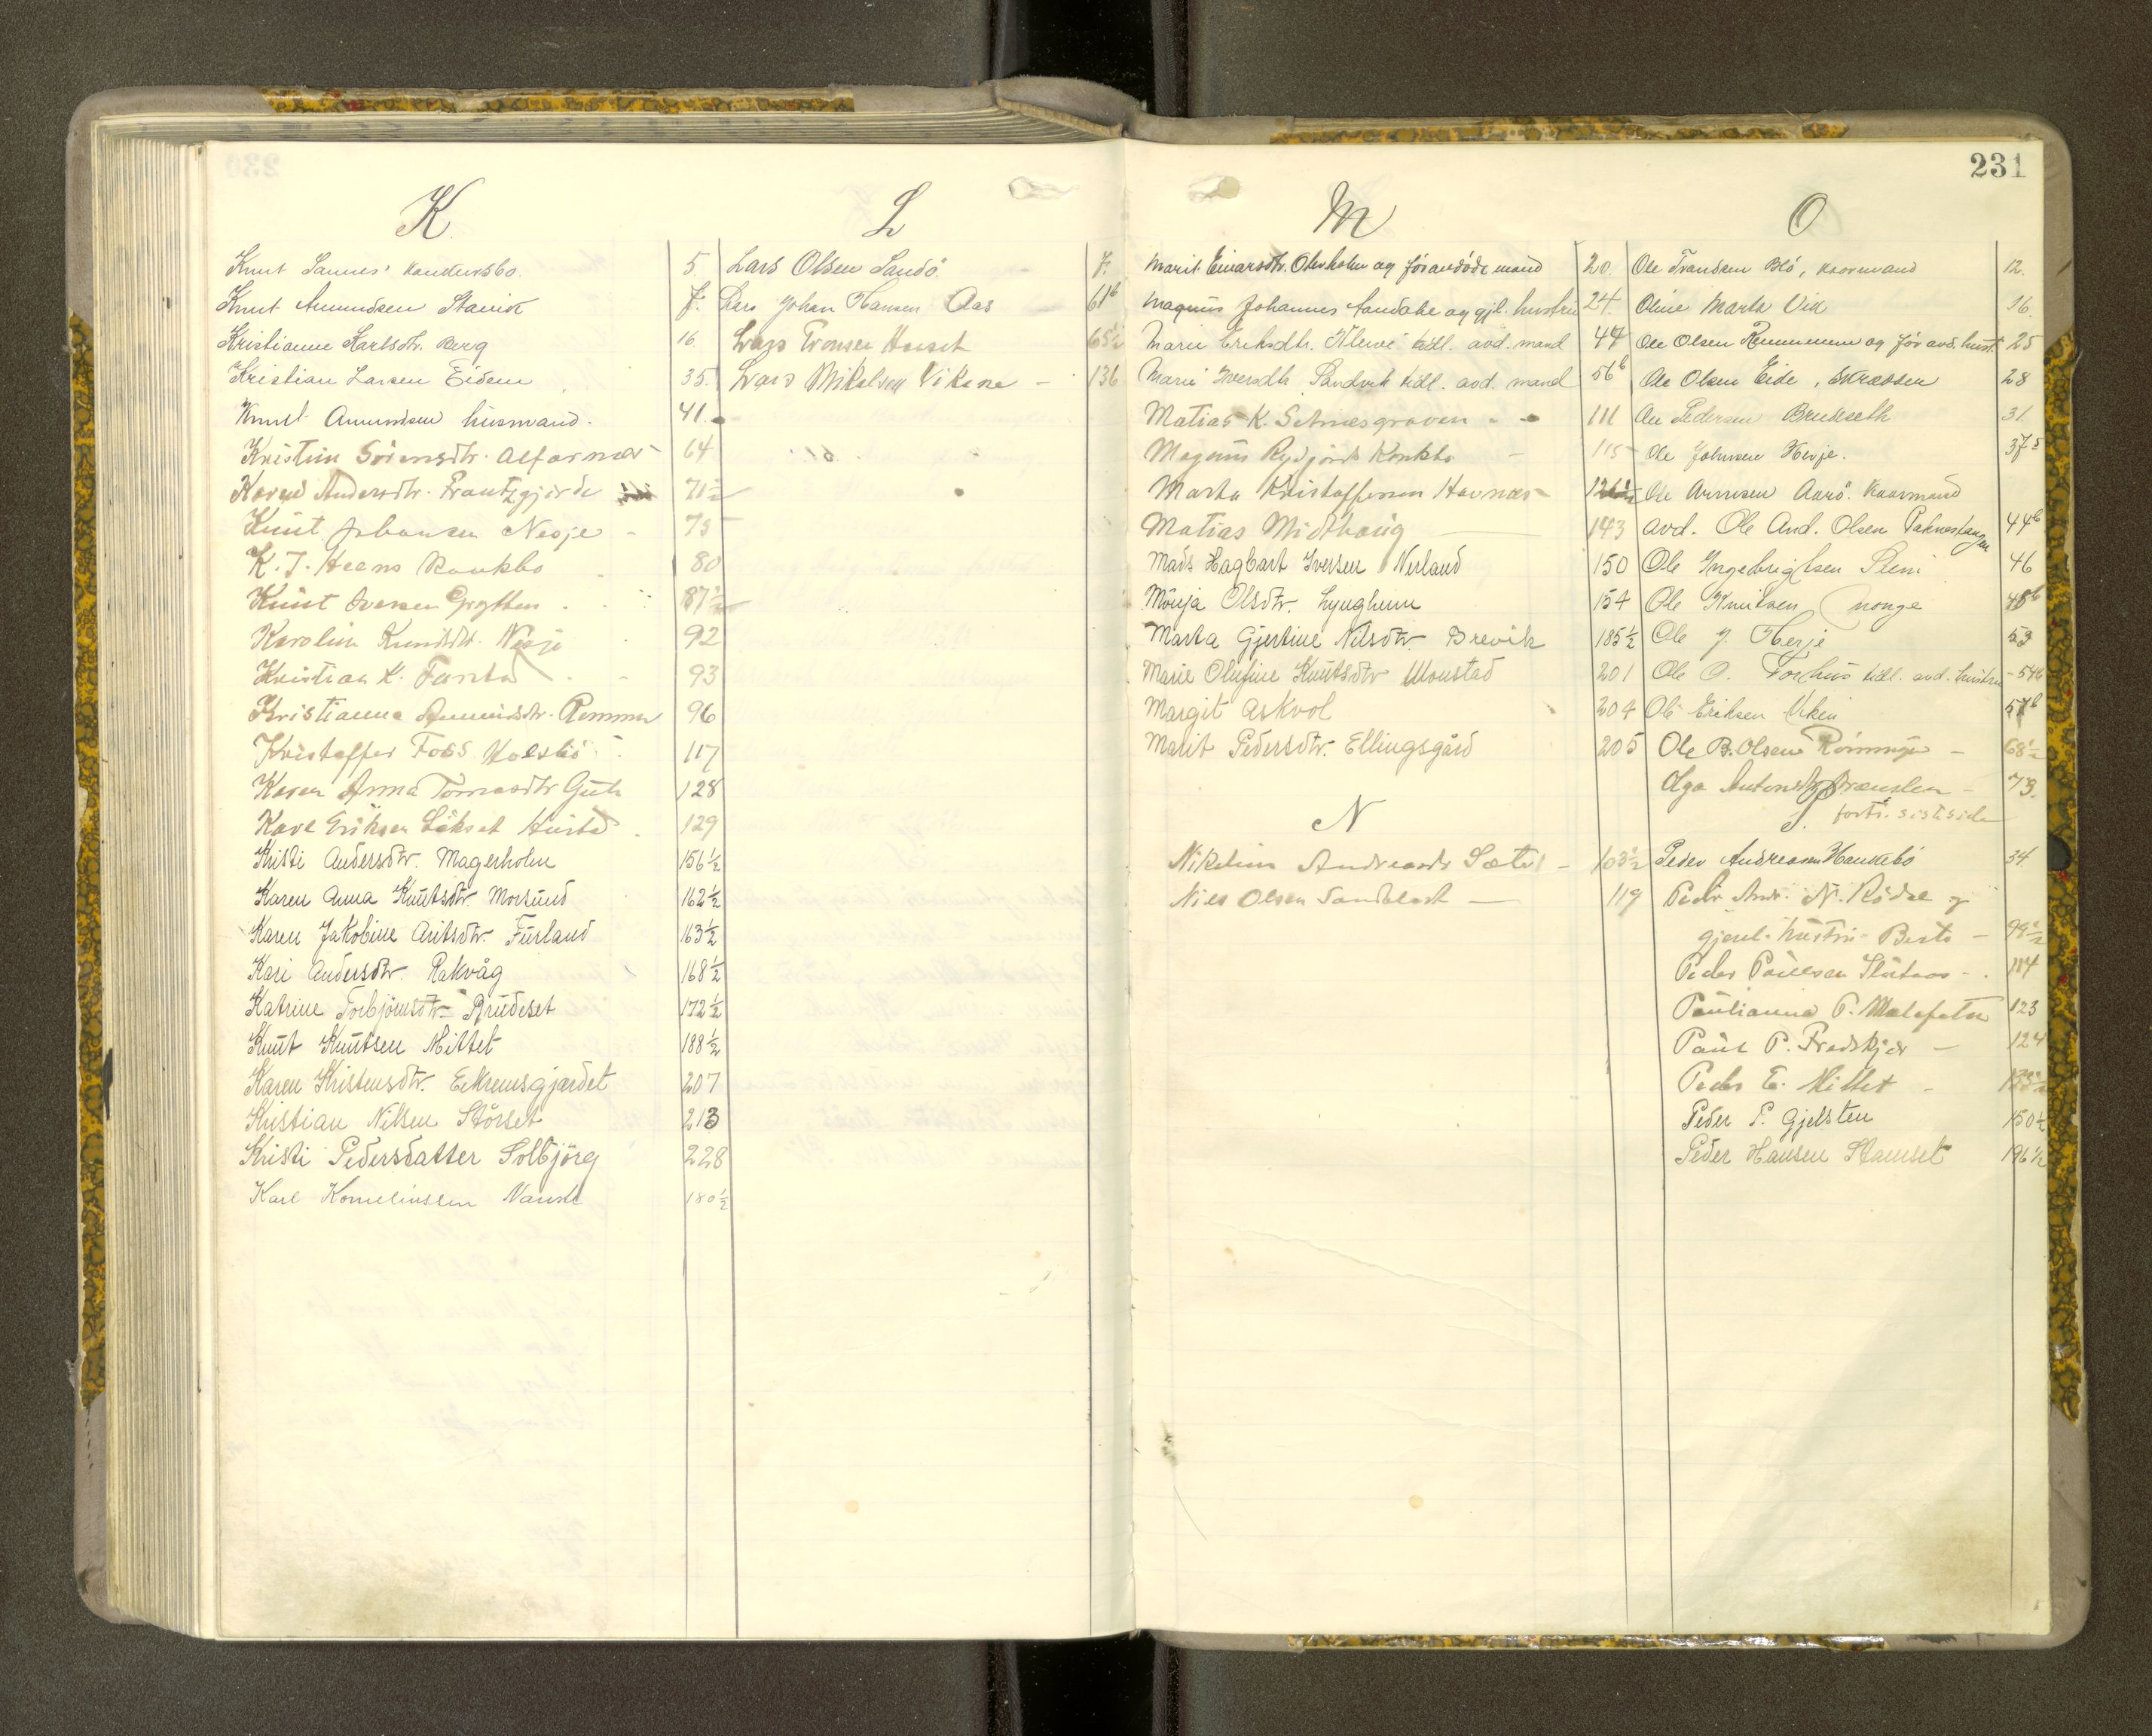 K.
Knut Sannes' Kandersbo. 5.
Knut Amundsen Stavik 7.
Kristianne Karlsdtr. Berg 16
Kristian Larsen Eidem 35.
Knut Amundsen husmand. 41.
Kristin Sörensdtr. Alfarnes 64
Karen Andersdtr. Frantzgjerde 71½
Knut Johansen Nesje 75
K. J. Heens 80
Knut Iversen Grytten 87½
Karolin Knutsdtr. Nesje 92
Kristian K. 93
Kristianna Amundsdtr. Remmen 96
Kristoffer Foss Holsbö 117
Karen Anna Tomasdtr 128
Kare Eriksen Hustad 129
Kristi Andersdtr. Magerholm 156½
Karen Anna Knutsdtr. Morsund 162½
Karen Jakobine Aritsdtr. Furland 163½
Kari Andersdtr. Rakvåg 168½
Katrine Torbjörnsdtr. Rrudeset 172½
Knut Knutsen Mittet 188½
Karen Kristensdtr. Eikremsgjærdet 207
Kristian Nilsen Störset 213
Kristi Pedersdatter Solbjörg 228
Karl Kornelinssen 180½
L
Lars Olsen Sandö 7.
Lars Johan Hansen Aas 61b
Lars Tronsen 65½
Lars Mikelsen Vikene 136
231
M
Marit Einarsdtr. Olenholm og föravdöde mand 20.
Magnus Johannes Sandake og gjl. hustru 24.
Marie Eriksdtr. tidl. avd. mand 44
Marie Iversdtr. Sandvik tidl. avd. mand 56b
Matias K. Setnesgroven 111
Magnus Rydjord 115
Marta Kristoffersen Havnæs 126½
Matias Midthaug 143
Mads Hagbart Iversen Nerland 150
Olsdtr. Lyngheim 154
Marta Gjertine Nilsdtr. Brevik 185½
Marie Olufine Knutsdtr Monstad 201
Margit Askvol 204
Marit Pedersdtr. Ellingsgård 205
N
Nikoline Andreasdr Sæter 103½
Nils Olsen Sandblost 119
O
Ole Trandsen Blö, Kaarmand 12.
Oline Marta Vik 16.
Ole Olsen Remmem og för avd. hust. 25
Ole Olsen Eide, Skrædder 28
Ole Pedersen Brudeseth 31
Ole Johnsen Herje. 37
Ole Arnesen Aarö. Kaarmand
avd. Ole And. Olsen Paknestangen 44b
Ole Ingebrigtsen 46
Ole Knutsen 48b
Ole J. Herje 53
Ole O. Torhus tidl. avd. hustru 54b
Ole Eriksen 57b
Ole B. Olsen Rönningen 68½
Olga 73.
forts. sist side
Peder Andreasen Haukebö 34
Peder Andr. N. Rödal og
gjenl. hustru Berte 99½
Peder Paulsen 114
Paulianna P. Malefeten 123
Paul P. Fredskjær 124
Peder E. Mittet
Peder P. Gjelsten 150½
Peder Hansen Stamset 196½